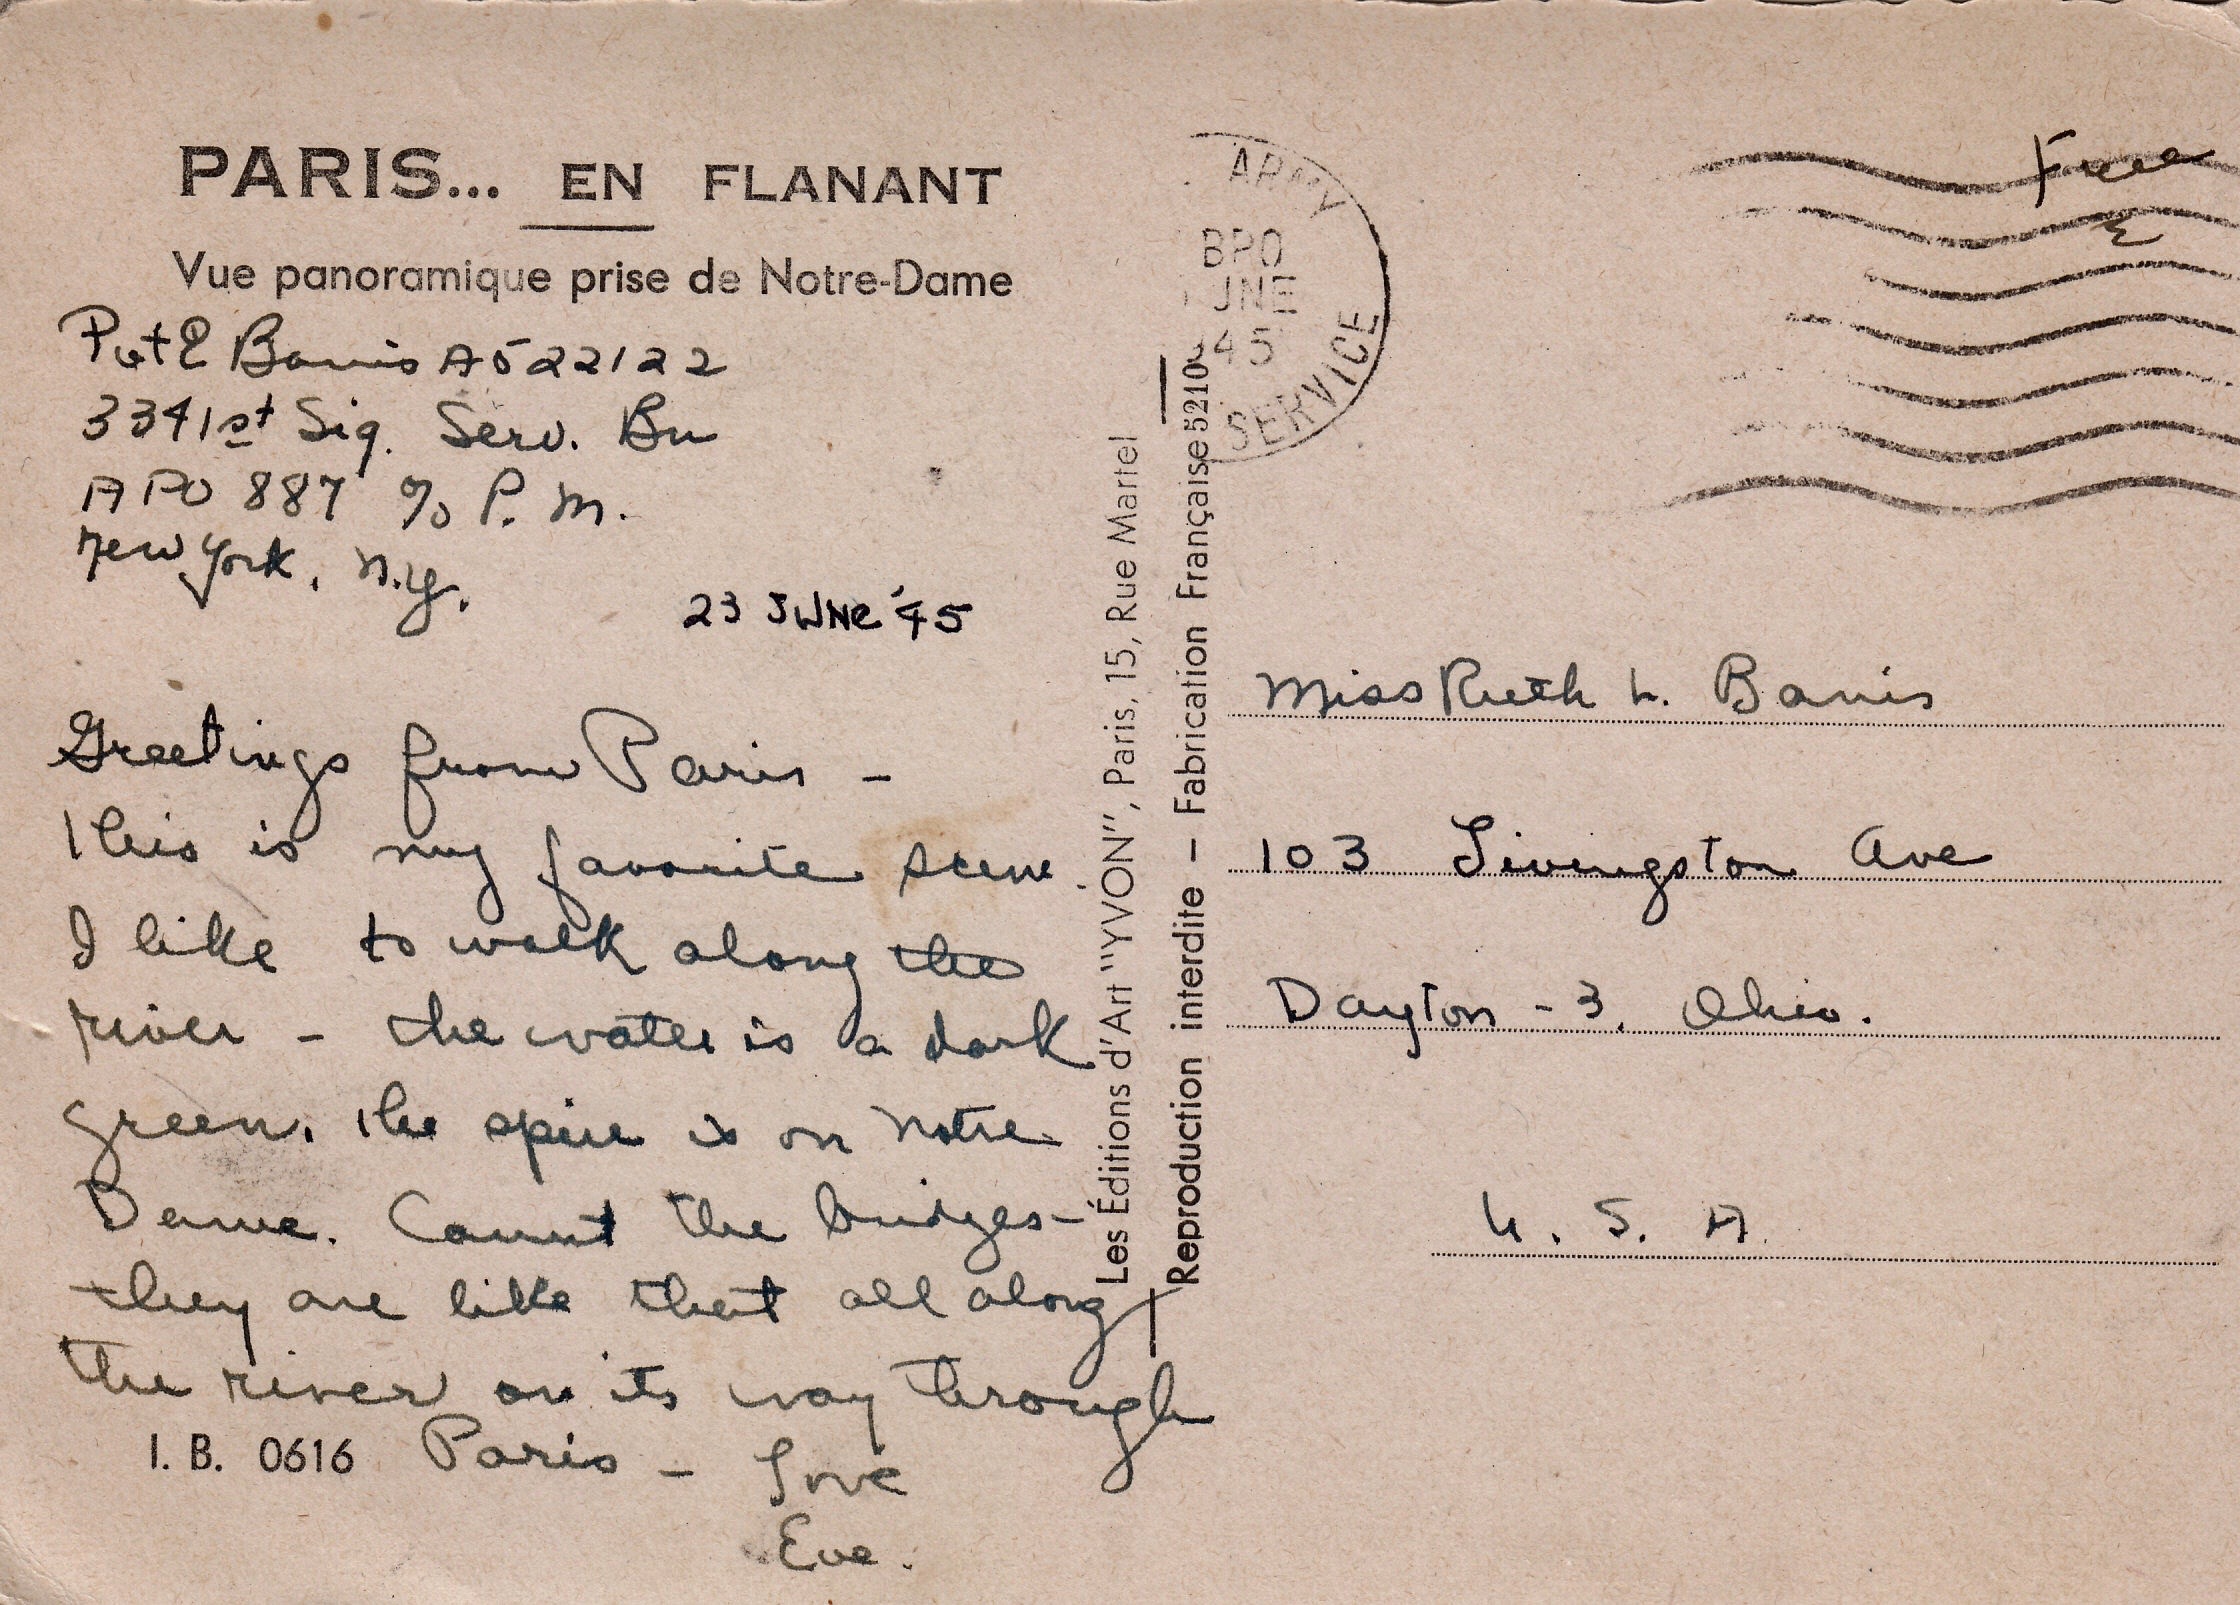 PARIS... EN FLANANT
Vue panoramique prise de Notre-Dame
Pvt E Banis A522122
3341st Sig. Serv. Bn
APO 887 c/o P. M.
New York, N.Y.
23 JUNe '45
Greetings from Paris -
This is my favorite scene.
I like to walk along the
river - the water is a dark
green. The spire is on Notre
Dame. Count the bridges -
they are like that all along
the river on its way through
Paris - Love
Eve.
I. B. 0616
Les Éditions d'Art "YVON", Paris, 15, Rue Martel
Reproduction interdite - Fabrication Française 5210
ARMY
BPO
JNE
45
SERVICE
Free
Miss Ruth L. Banis
103 Livingston Ave
Dayton - 3, Ohio.
U. S. A.